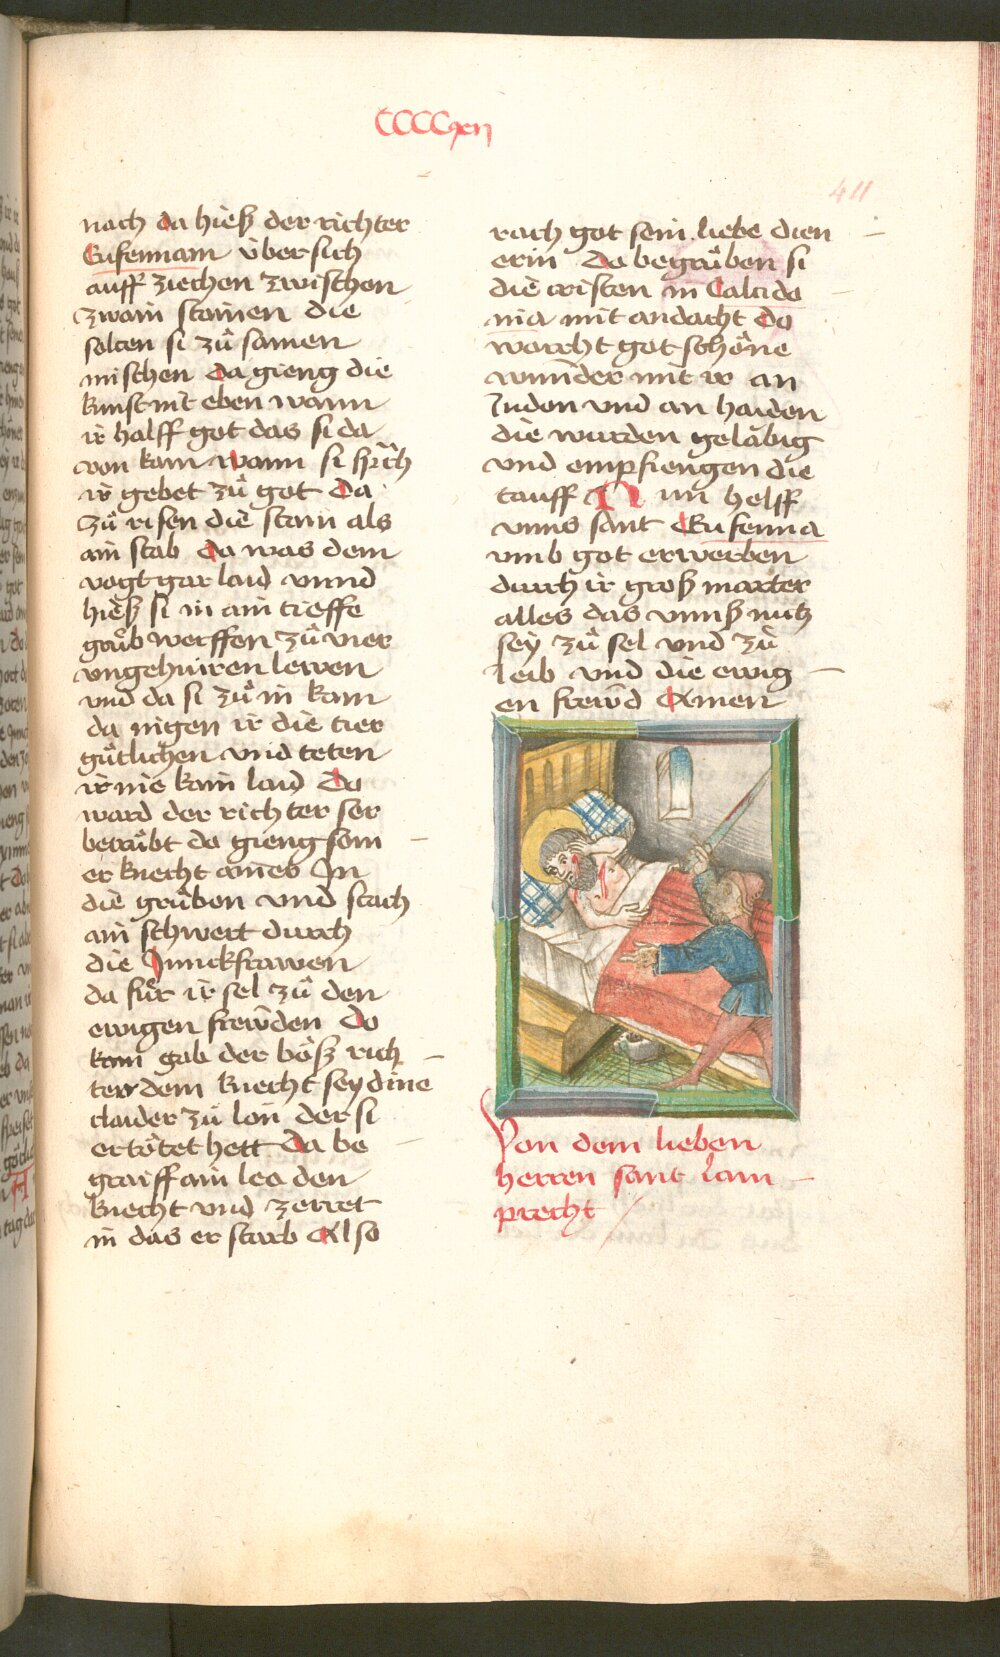 CCCCxii
411
nach da hieß der richter
Eufemiam über sich
auff ziechen zwischen
zwain stainen die
solten si zů samen
mischen da gieng die
kunst nit eben wann
ir halff got das si da
von kam wann si sprach
ir gebet zů got da
zů risen die stain als
ain stab da was dem
vogt gar laid vnnd
hieß si in ain tieffe
grůb werffen zů vier
vngehuiren lewen
vnd da si zů in kam
da nigen ir die tier
gůtlichen vnd teten
ir nie kain laid Do
ward der richter ser
betrůbt do gieng sein
er knecht aines In
die grůben vnd stach
ain schwert durch
die Junckfrawen
da fůr ir sel zů den
ewigen frewden Do
kam gab der böß rich
ter dem knecht seydine
claider zů lon der si
ertötet hett Da be
graiff ain leo den
knecht vnd zerret
in das er starb Also
rach got sein liebe dien
erin Do begrůben si
die cristen in Calcido
nia mit andacht Do
worcht got schöne
wunder mit ir an
Juden vnd an haiden
die wurden geläbig
vnd empfiengen die
tauff Nun helff
vnns sant Eufemia
vmb got erwerben
durch ir groß marter
alles das vnnß nutz
sey zů sel vnd zů
leib vnd die ewig
en frewd Amen
Von dem lieben
herren sant Lam
precht